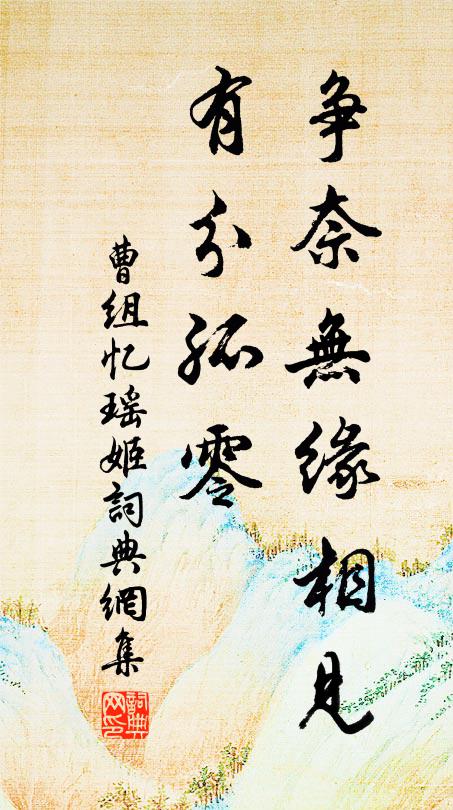 争奈無緣相見
有分孤零
曹组忆瑶姬詞典網集
詞典
网印